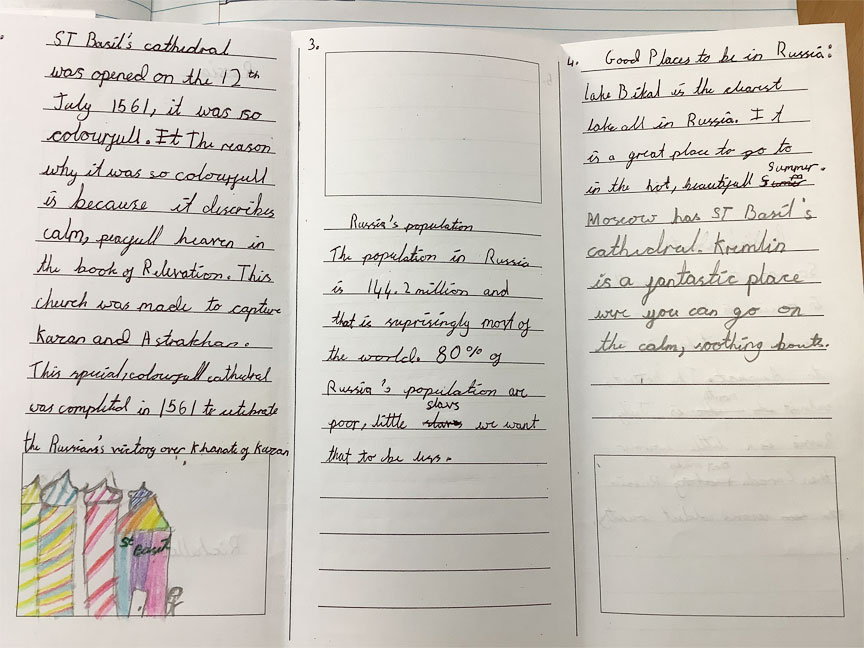 ST Basil's cathedral
was opened on the 12th
July 1561, it was so
colourfull. It The reason
why it was so colourfull
is because it discribes
calm, peacfull heaven in
the book of Relevation. This
church was made to capture
Kazan and Astrakhan.
This special, colourfull cathedral
was completed in 1561 to celebrate
the Russians's victory over Khanate of Kazan
St Basil
3.
Russia's population
The population in Russia
is 144.2 million and
that is suprisingly most of
the world. 80% of
Russia's population are
slavs
poor, little slavs we want
that to be less.
4. Good Places to be in Russia:
lake Bikal is the clearest
lake all in Russia. It
is a great place to go to
Summer.
in the hot, beautifull
Moscow has ST Basil's
cathedral. Kremlin
is a fantastic place
were you can go on
the calm, soothing boats.